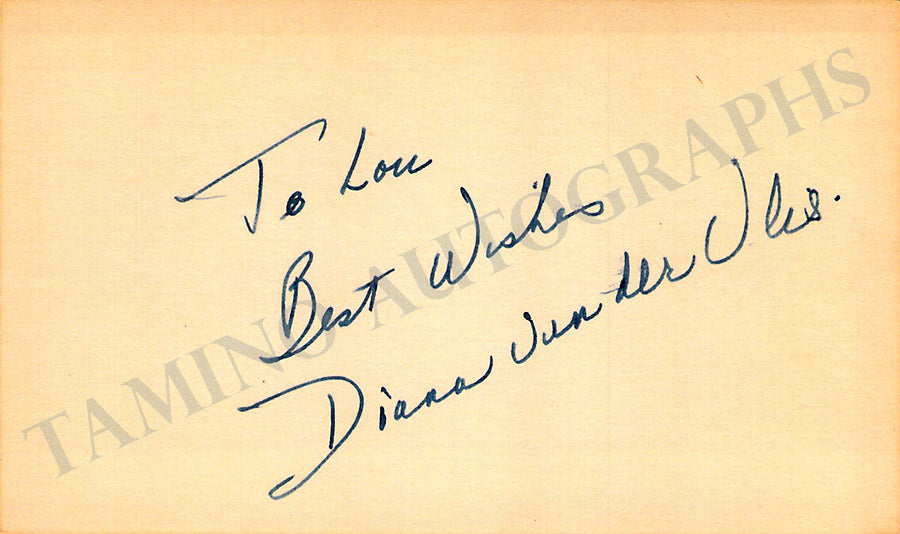 To Lou
Best Wishes
Diana van der Vlis.
TAMINO AUTOGRAPHS